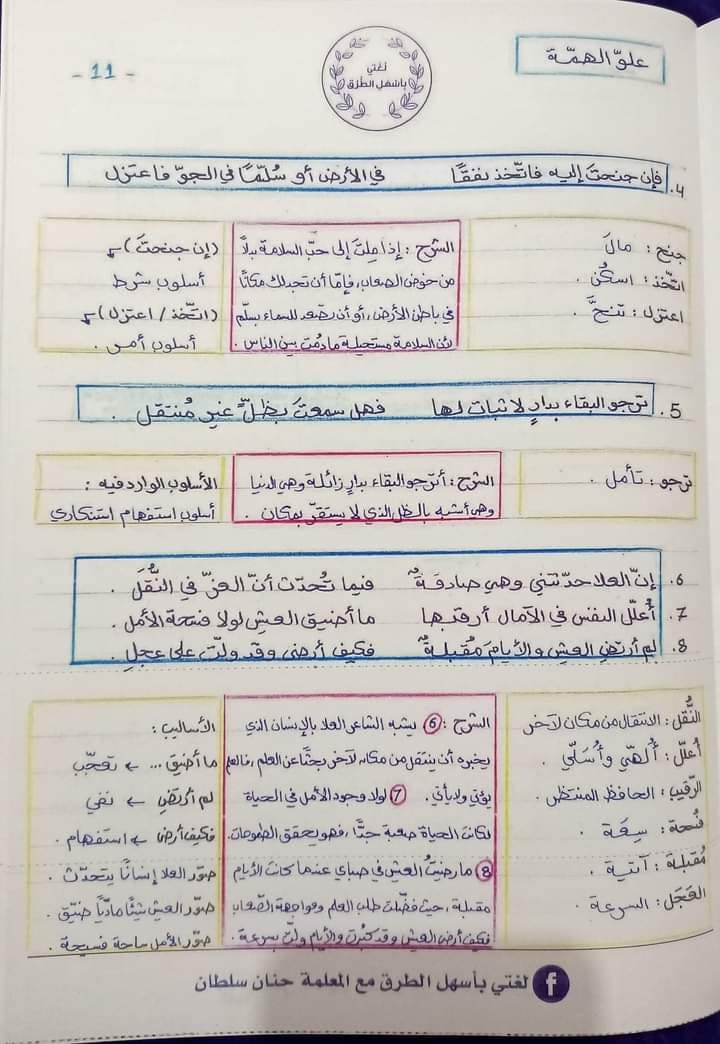 علوّ الهمّة
لغتي
بأسهل الطرق
- 11 -
4. فإن جنحتَ إليه فاتّخذ نفقًا في الأرض أو سُلّمًا في الجوّ فاعتزل
جنح : مالَ
اتّخذ : اسكُن .
اعتزل : تنحَّ .
الشرح : إذا مِلتَ إلى حبّ السلامة بدلًا
من خوض الصعاب، فإمّا أن تجد لك مكانًا
في باطن الأرض، أو أن تصعد للسماء بسلّم
لأن السلامة مستحيلة ما دُمت بين الناس .
(إن جنحتَ) ↓
أسلوب شرط
(اتّخذ / اعتزل) ↓
أسلوب أمر .
5. ترجو البقاء بدارٍ لا ثبات لها فهل سمعتَ بظلٍّ غيرِ مُنتقل .
ترجو : تأمل .
الشرح : أترجو البقاء بدارٍ زائلة وهي الدنيا
وهي أشبه بالظل الذي لا يستقرّ بمكان .
الأسلوب الوارد فيه :
أسلوب استفهام استنكاري
6. إنّ العلا حدّثتني وهي صادقةٌ فيما تُحدّث أنّ العزّ في النُّقَل .
7. أُعلّل النفس في الآمال أرقبُها ما أضيق العيشِ لولا فسحة الأمل .
8. لم أرتضِ العيش والأيامُ مُقبلةٌ فكيف أرضى وقد ولّت على عجلِ .
النُّقَل : الانتقال من مكان لآخر
أُعلّل : أُلهّي وأُسلّي .
الرّقيب : الحافظ المنتظر .
فُسحة : سِعَة .
مُقبلة : آتية .
العَجَل : السرعة .
الشرح : (6) يشبه الشاعر العلا بالإنسان الذي
يخبره أن ينتقل من مكان لآخر بحثًا عن العلم، فالعلم
يؤتى ولا يأتي. (7) لولا وجود الأمل في الحياة
لكانت الحياة صعبة جدًّا، فهو يحقق الطموحات.
(8) ما رضيتُ العيش في صباي عندما كانت الأيام
مقبلة، حيث فضّلت طلب العلم ومواجهة الصّعاب
فكيف أرضى العيش وقد كبُرت والأيام ولّت بسرعة .
الأساليب :
ما أضيق ... ← تعجّب
لم أرتضِ ← نفي
فكيف أرضى ← استفهام .
صوّر العلا إنسانًا يتحدّث .
صوّر العيش شيئًا ماديًّا ضيّق .
صوّر الأمل ساحة فسيحة .
لغتي بأسهل الطرق مع المعلمة حنان سلطان